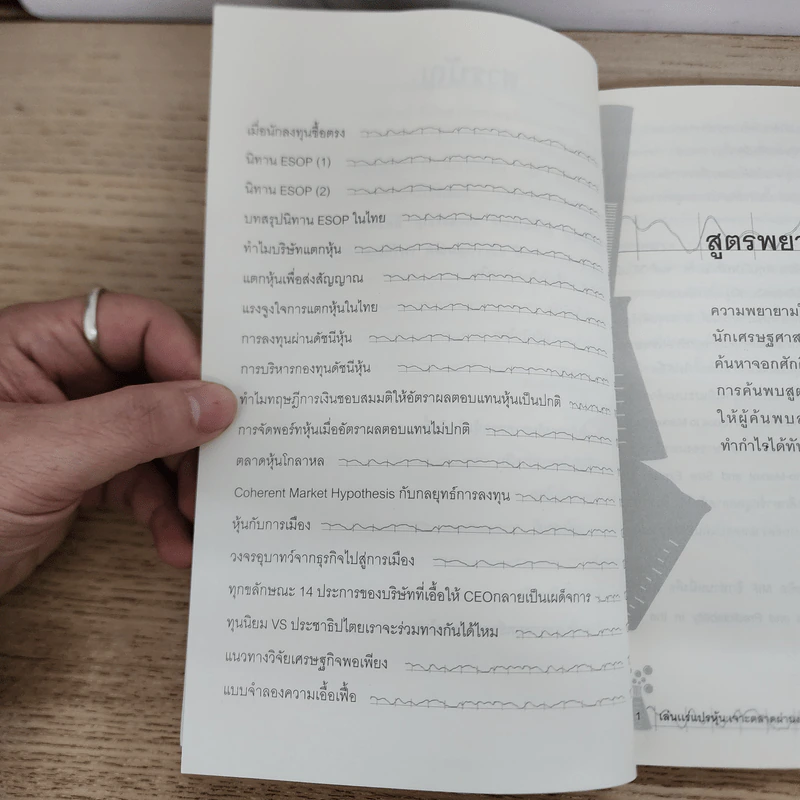 เมื่อนักลงทุนซื้อตรง
นิทาน ESOP (1)
นิทาน ESOP (2)
บทสรุปนิทาน ESOP ในไทย
ทำไมบริษัทแตกหุ้น
แตกหุ้นเพื่อส่งสัญญาณ
แรงจูงใจการแตกหุ้นในไทย
การลงทุนผ่านดัชนีหุ้น
การบริหารกองทุนดัชนีหุ้น
ทำไมทฤษฎีการเงินชอบสมมติให้อัตราผลตอบแทนหุ้นเป็นปกติ
การจัดพอร์ทหุ้นเมื่ออัตราผลตอบแทนไม่ปกติ
ตลาดหุ้นโกลาหล
Coherent Market Hypothesis กับกลยุทธ์การลงทุน
หุ้นกับการเมือง
วงจรอุบาทว์จากธุรกิจไปสู่การเมือง
ทุกขลักษณะ 14 ประการของบริษัทที่เอื้อให้ CEOกลายเป็นเผด็จการ
ทุนนิยม VS ประชาธิปไตยเราจะร่วมทางกันได้ไหม
แนวทางวิจัยเศรษฐกิจพอเพียง
แบบจำลองความเอื้อเฟื้อ
สูตรพยา
ความพยายามใ
นักเศรษฐศาส
ค้นหาจอกศักดิ
การค้นพบสูต
ให้ผู้ค้นพบส
ทำกำไรได้ทัน
1 เล่นแร่แปรหุ้น เจาะตลาดผ่าน